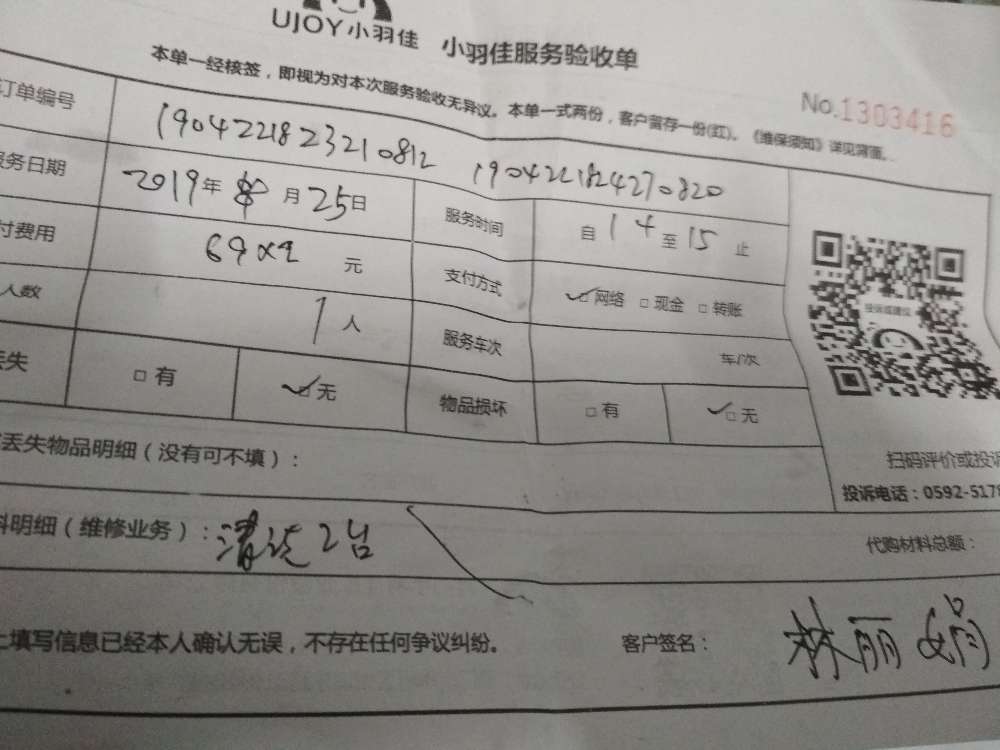 UJOY小羽佳 小羽佳服务验收单
本单一经核签，即视为对本次服务验收无异议。本单一式两份，客户留存一份(红)。《维保须知》详见背面。
No.1303416
订单编号 1904221823210812 1904221824270820
服务日期 2019年 月25日 服务时间 自14至15止
付费用 69x2 元 支付方式 ☑网络 □现金 □转账
人数 1人 服务车次 车/次
丢失 □有 ☑无 物品损坏 □有 ☑无
投诉或建议
扫码评价或投诉
丢失物品明细（没有可不填）：
投诉电话：0592-5178
料明细（维修业务）：清洗2台 代购材料总额：
上填写信息已经本人确认无误，不存在任何争议纠纷。 客户签名：林丽娟